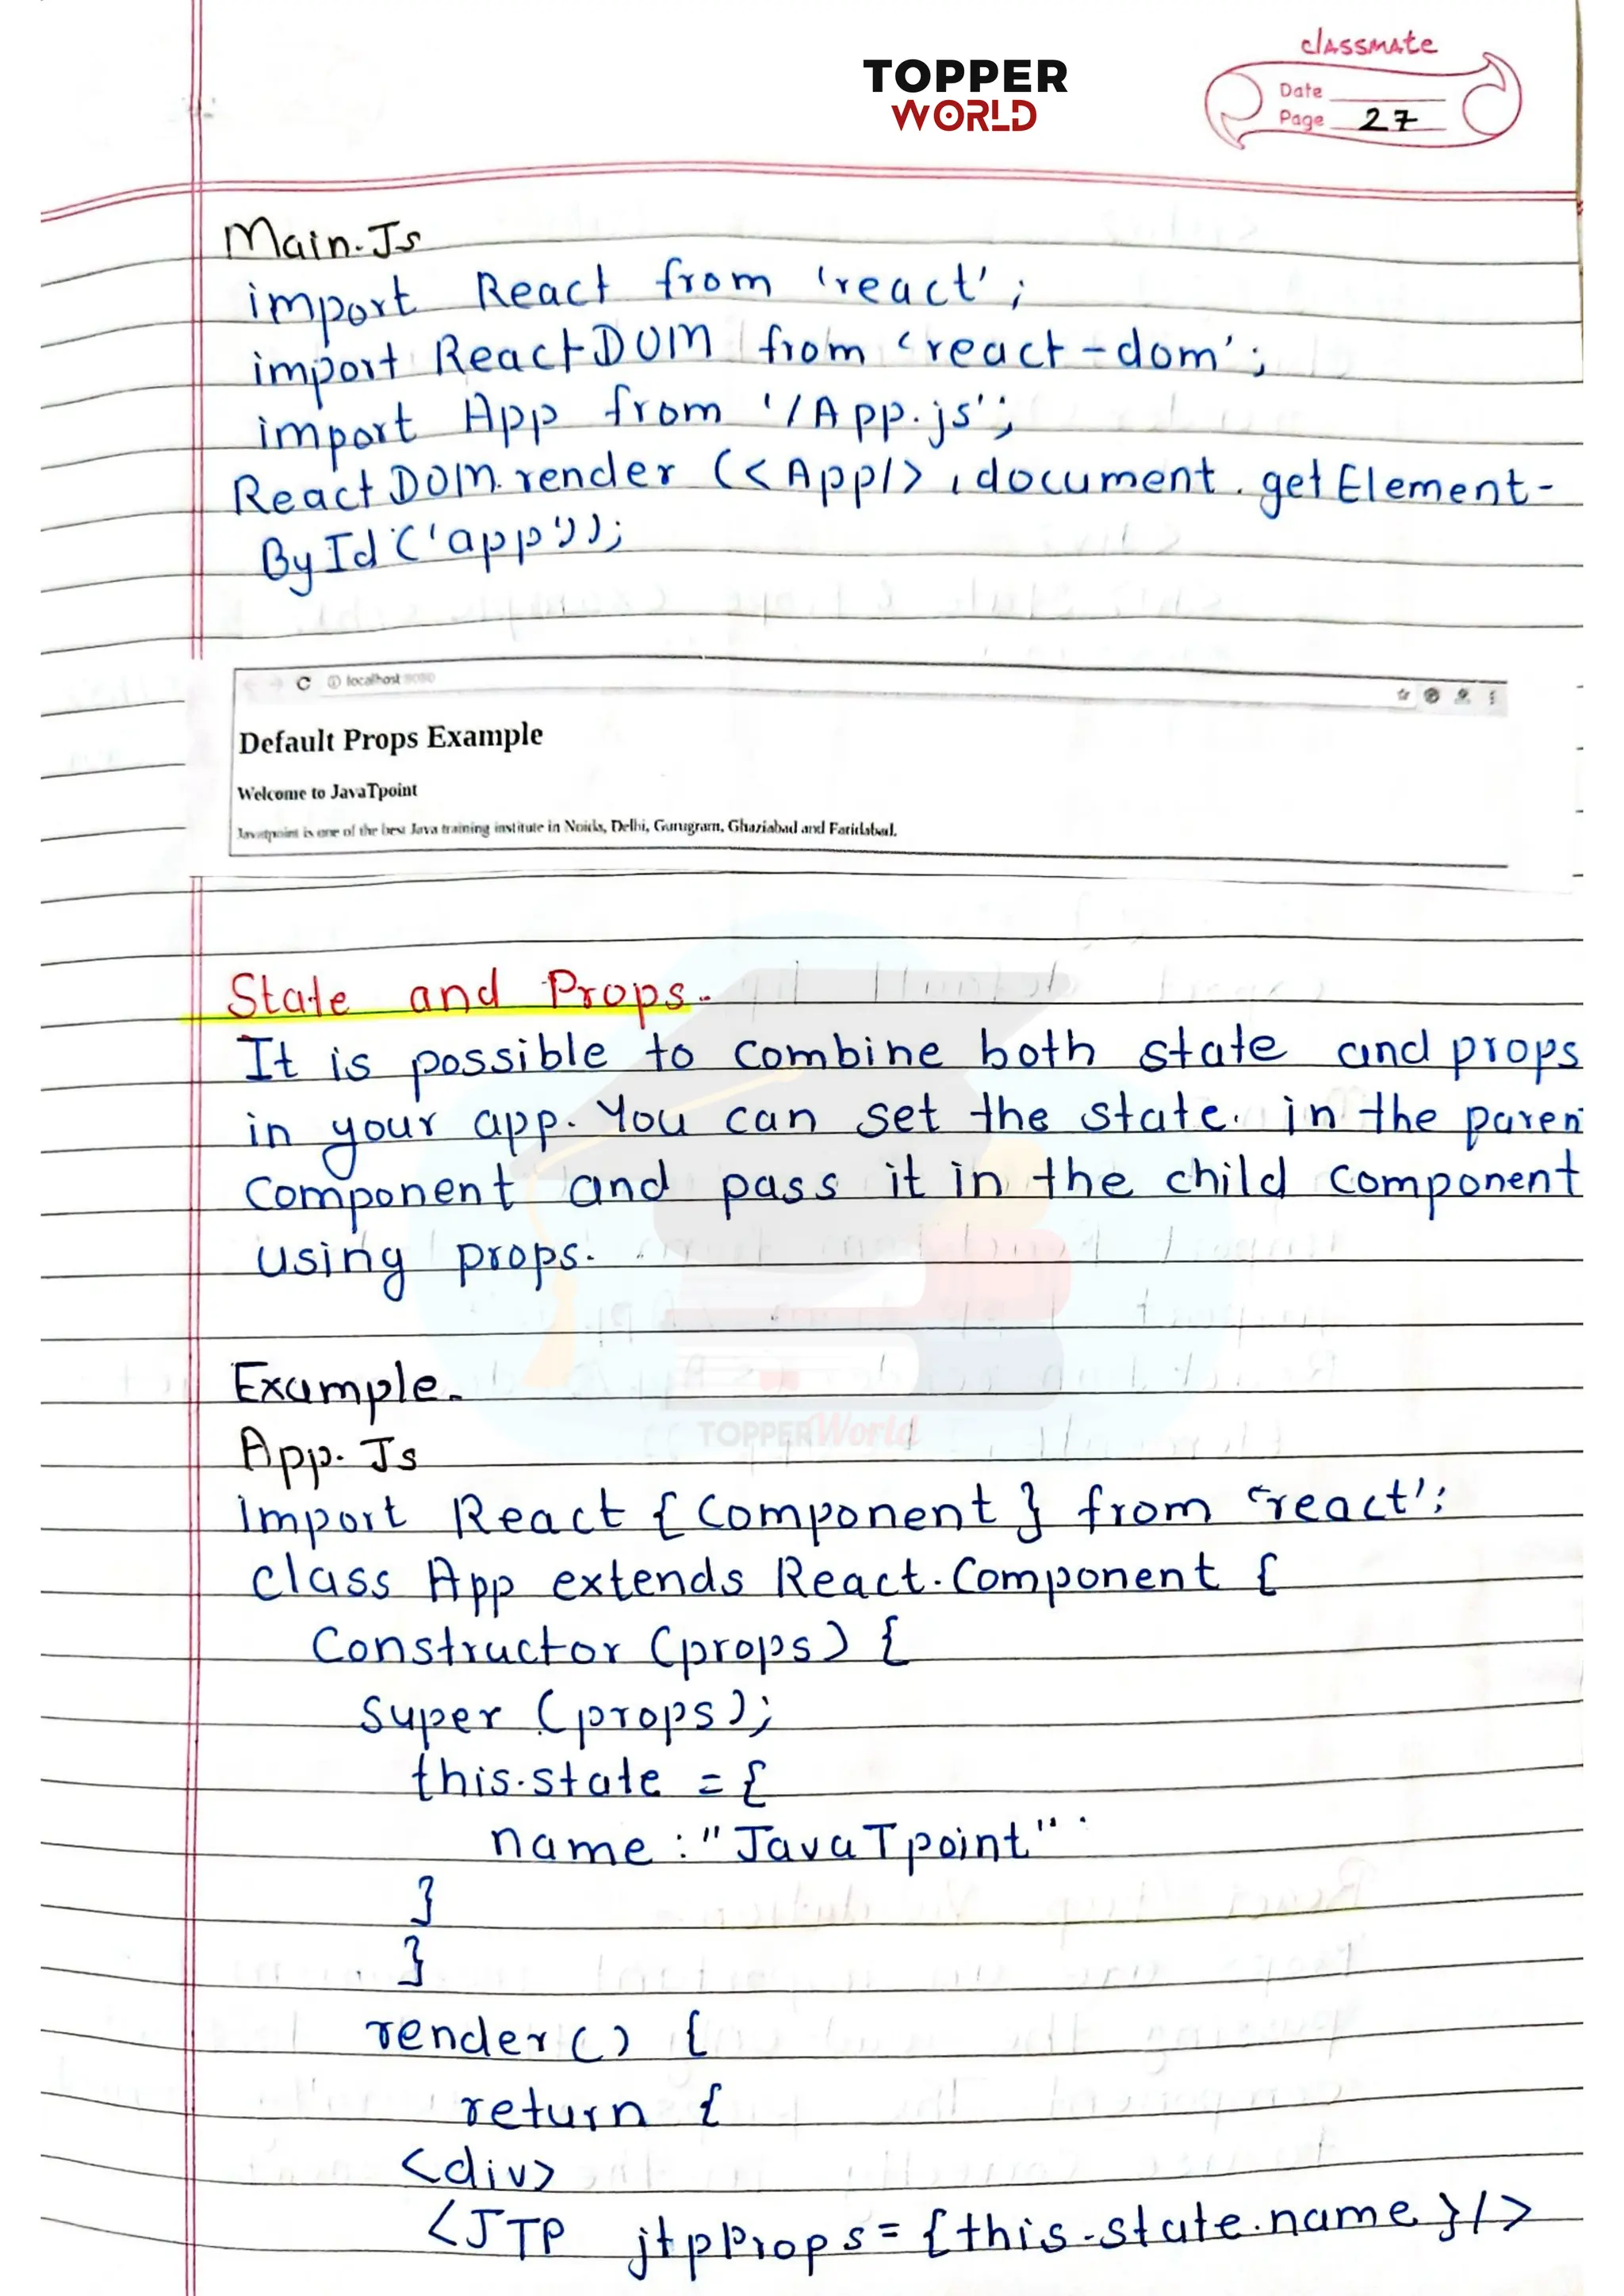 TOPPER
WORLD
classmate
Date
Page 27
Main.Js
import React from 'react';
import ReactDOM from 'react-dom';
import App from '/App.js';
ReactDOM.render (<App/>, document.getElement-
ById('app'));
localhost:8080
Default Props Example
Welcome to JavaTpoint
Javatpoint is one of the best Java training institute in Noida, Delhi, Gurugram, Ghaziabad and Faridabad.
State and Props.
It is possible to combine both state and props
in your app. You can set the state. in the paren
component and pass it in the child component
using props.
Example.
App.Js
import React {Component} from 'react';
class App extends React.Component {
Constructor (props) {
super (props);
this.state = {
name : "JavaTpoint"
}
}
render () {
return {
<div>
<JTP jtpProps = {this.state.name}/>
TOPPERWorld